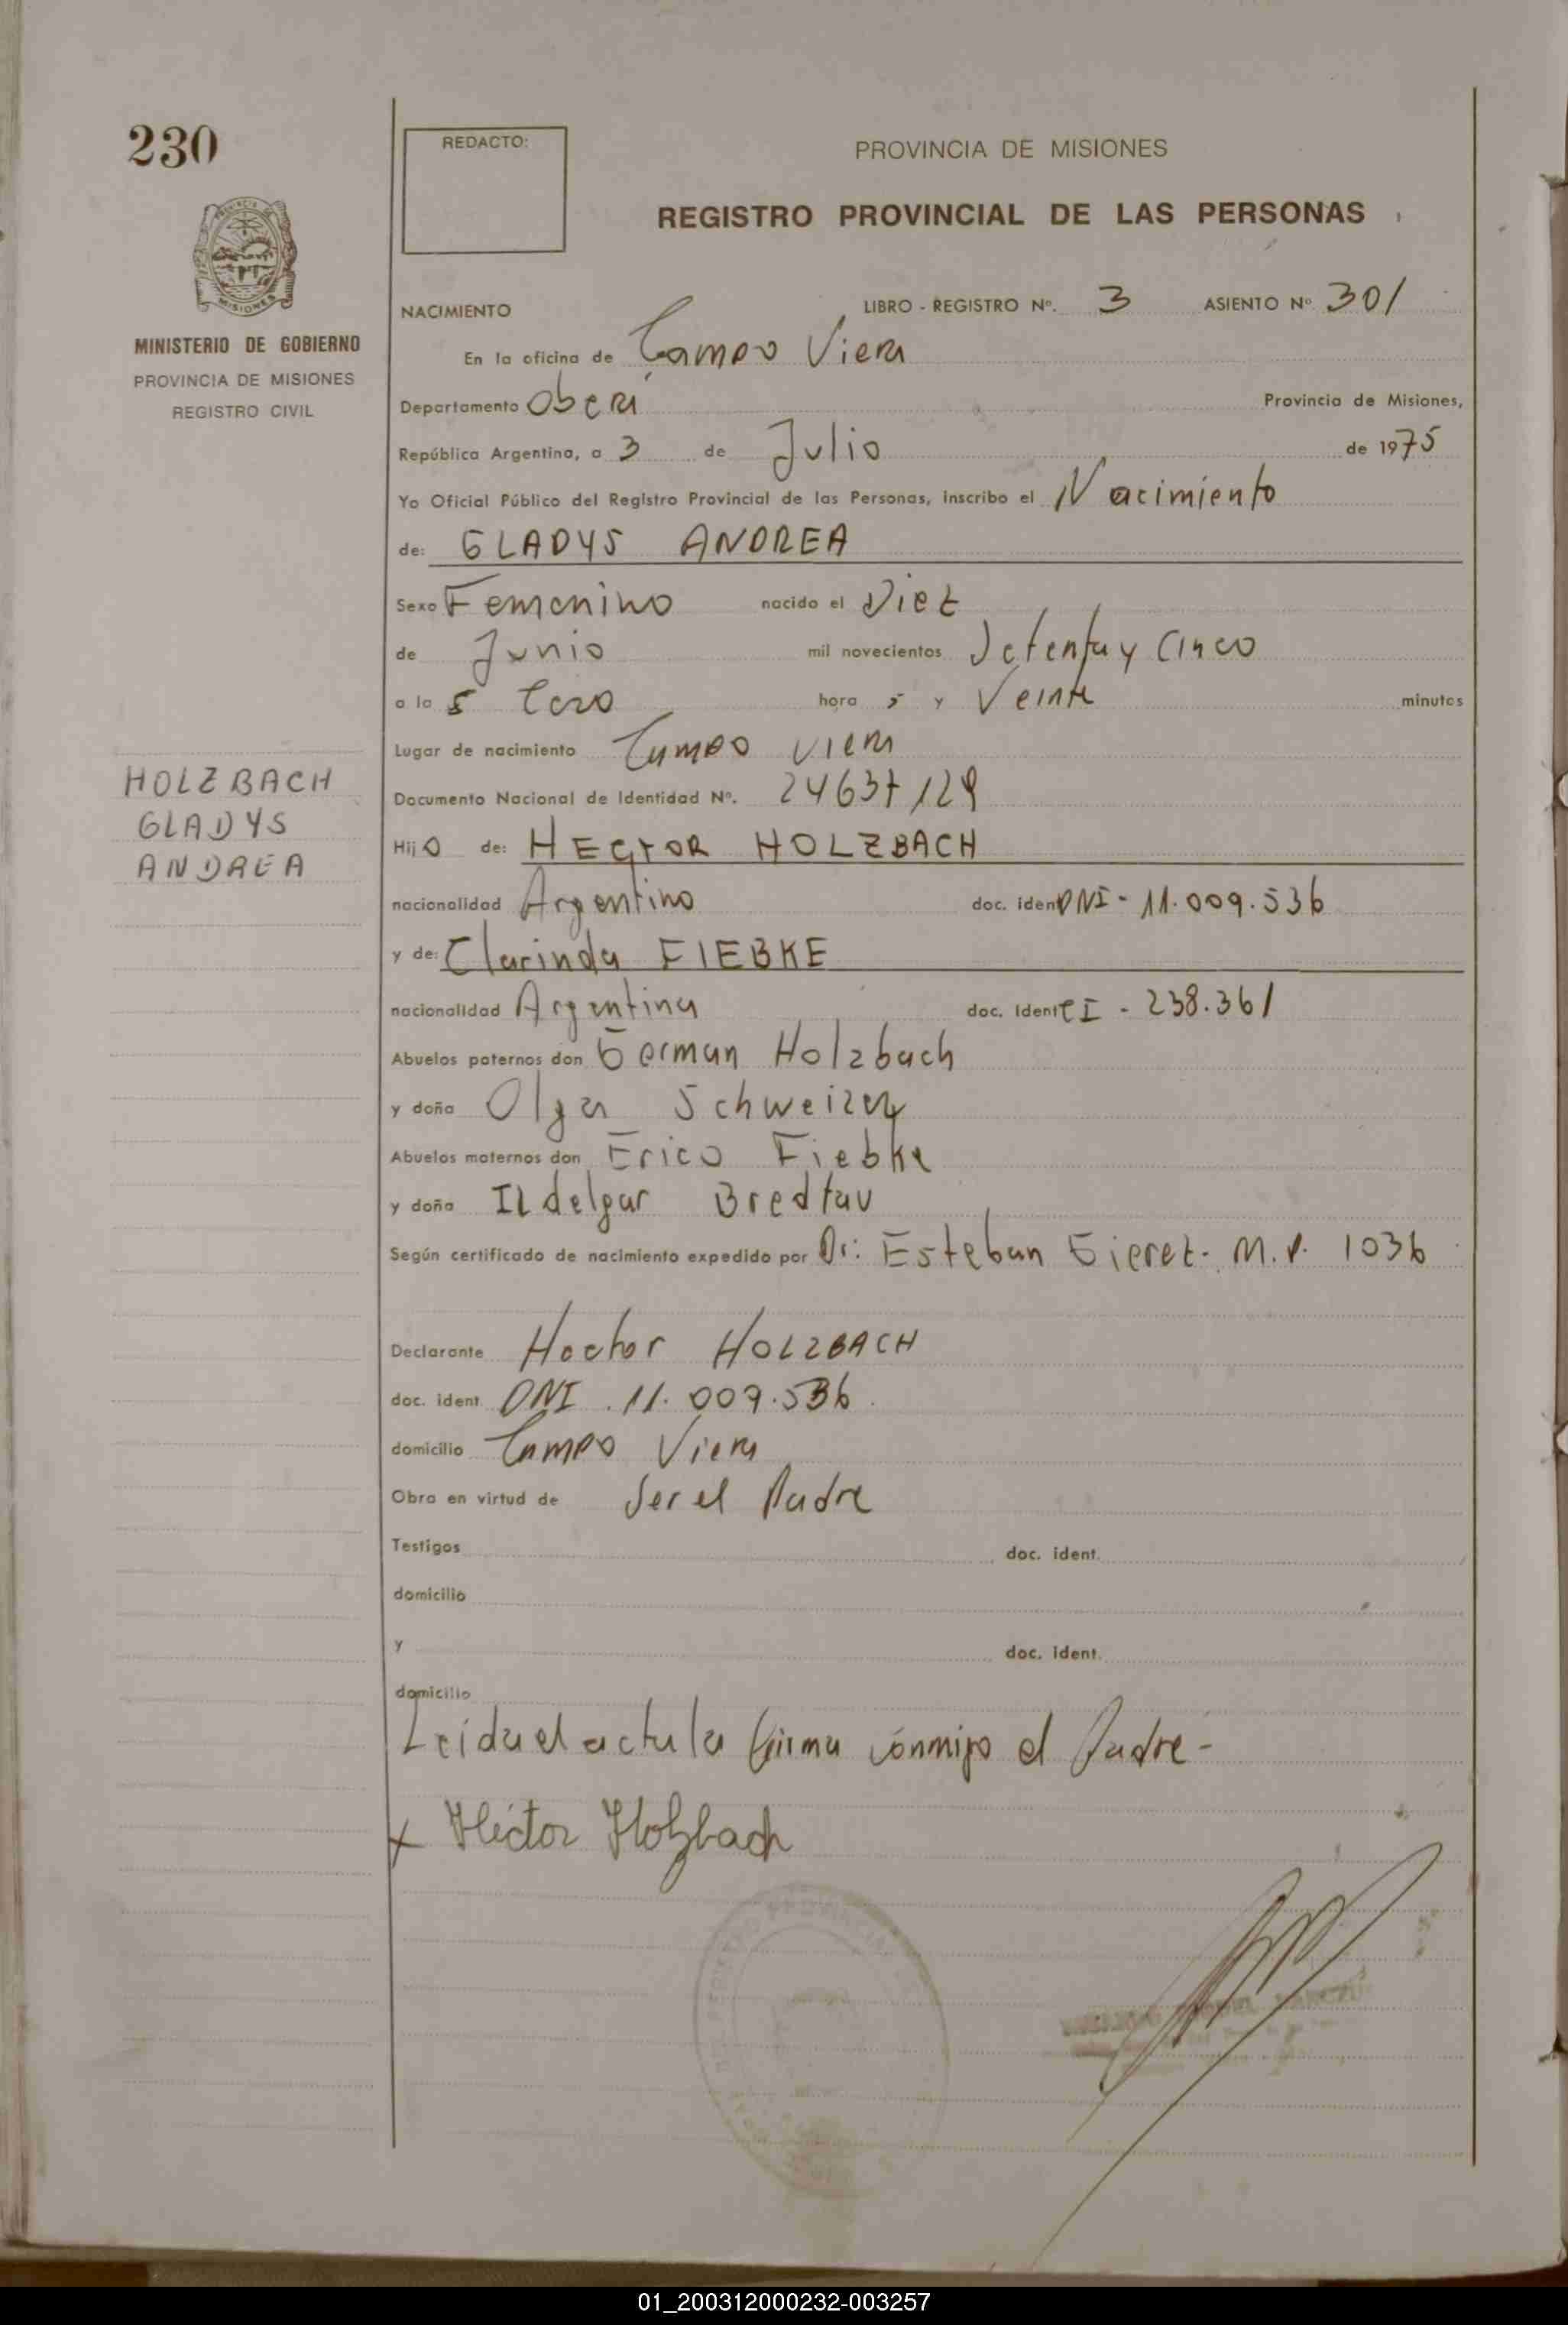 230
REDACTO:
PROVINCIA DE MISIONES
REGISTRO PROVINCIAL DE LAS PERSONAS
MISIONES
MINISTERIO DE GOBIERNO
PROVINCIA DE MISIONES
REGISTRO CIVIL
NACIMIENTO LIBRO - REGISTRO Nº. 3 ASIENTO Nº 301
En la oficina de Campo Viera
Departamento Oberá Provincia de Misiones,
República Argentina, a 3 de Julio de 1975
Yo Oficial Público del Registro Provincial de las Personas, inscribo el Nacimiento
de: GLADYS ANDREA
Sexo Femenino nacido el Diez
de Junio mil novecientos Setenta y Cinco
a la s Cero hora s y Veinte minutos
Lugar de nacimiento Campo Viera
HOLZBACH
GLADYS
ANDREA
Documento Nacional de Identidad Nº. 24637129
Hij o de: HECTOR HOLZBACH
nacionalidad Argentino doc. ident DNI - 11.009.536
y de: Clarinda FIEBKE
nacionalidad Argentina doc. ident CI - 238.361
Abuelos paternos don German Holzbach
y doña Olga Schweizer
Abuelos maternos don Erico Fiebke
y doña Ildelgar Bredtau
Según certificado de nacimiento expedido por Dr: Esteban Gieret. M.P. 1036
Declarante Hector HOLZBACH
doc. ident. DNI . 11.009.536.
domicilio Campo Viera
Obra en virtud de Ser el Padre
Testigos doc. ident.
domicilio
y doc. ident.
domicilio
Leida el acta la firma conmigo el Padre-
x Héctor Holzbach
01_200312000232-003257